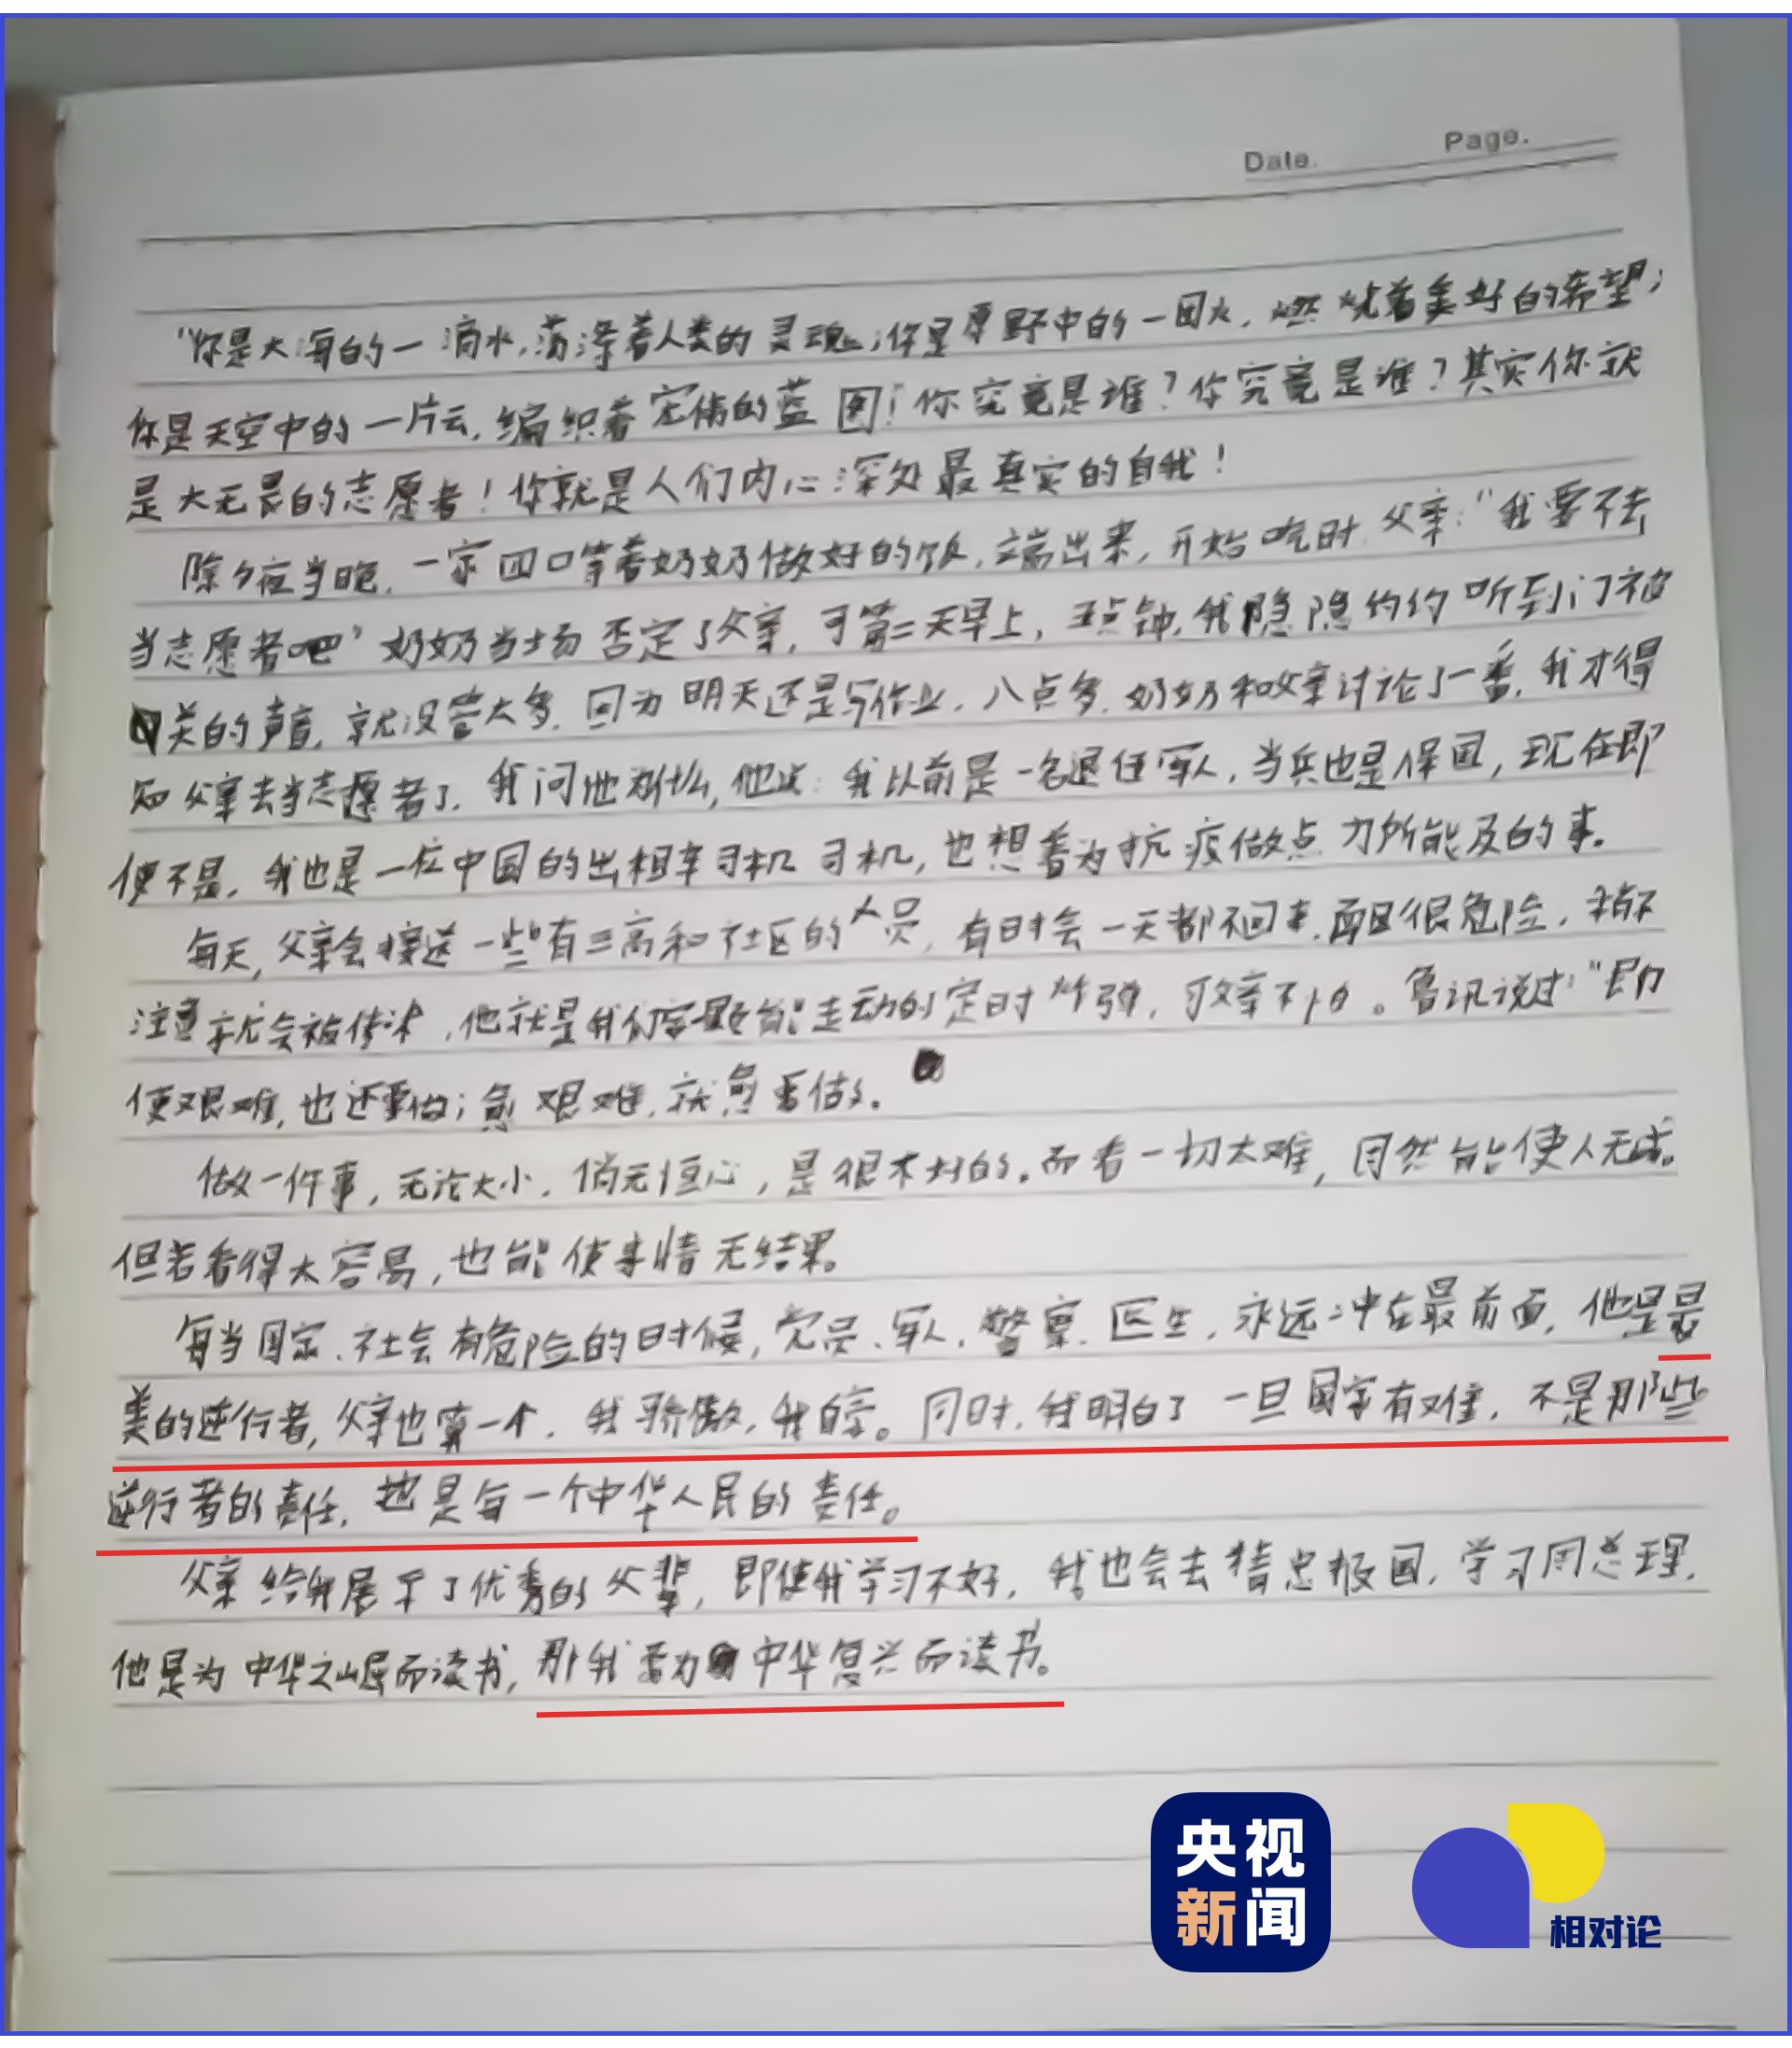 Date.
Page.
“你是大海的一滴水,荡涤着人类的灵魂;你是原野中的一团火,燃烧着美好的希望;
你是天空中的一片云,编织着宏伟的蓝图!你究竟是谁?你究竟是谁?其实你就
是大无畏的志愿者!你就是人们内心深处最真实的自我!
除夕夜当晚,一家四口等着奶奶做好的饭,端出来,开始吃时,父亲:“我要不去
当志愿者吧”奶奶当场否定了父亲,可第二天早上,五点钟,我隐隐约约听到门被
关的声音,就没管太多,因为明天还是写作业,八点多,奶奶和父亲讨论了一番,我才得
知父亲去当志愿者了,我问他为什么,他说:我以前是一名退任军人,当兵也是保国,现在即
使不是,我也是一位中国的出租车司机司机,也想着为抗疫做点力所能及的事。
每天,父亲会接送一些有三高和社区的人员,有时会一天都不回来,而且很危险,稍不
注意就会被传染,他就是我们家最能走动的定时炸弹,可父亲不怕。鲁迅说过:“即
使艰难,也还要做;愈艰难,就愈要做。
做一件事,无论大小,倘无恒心,是很不好的。而看一切太难,固然能使人无成。
但若看得太容易,也能使事情无结果。
每当国家、社会有危险的时候,党员、军人、警察、医生,永远冲在最前面,他是最
美的逆行者,父亲也算一个,我骄傲,我自豪。同时,我明白了一旦国家有难,不是那些
逆行者的责任,也是每一个中华人民的责任。
父亲给我展示了优秀的父辈,即使我学习不好,我也会去精忠报国,学习周总理,
他是为中华之崛而读书,那我要为中华复兴而读书。
央视
新闻
相对论